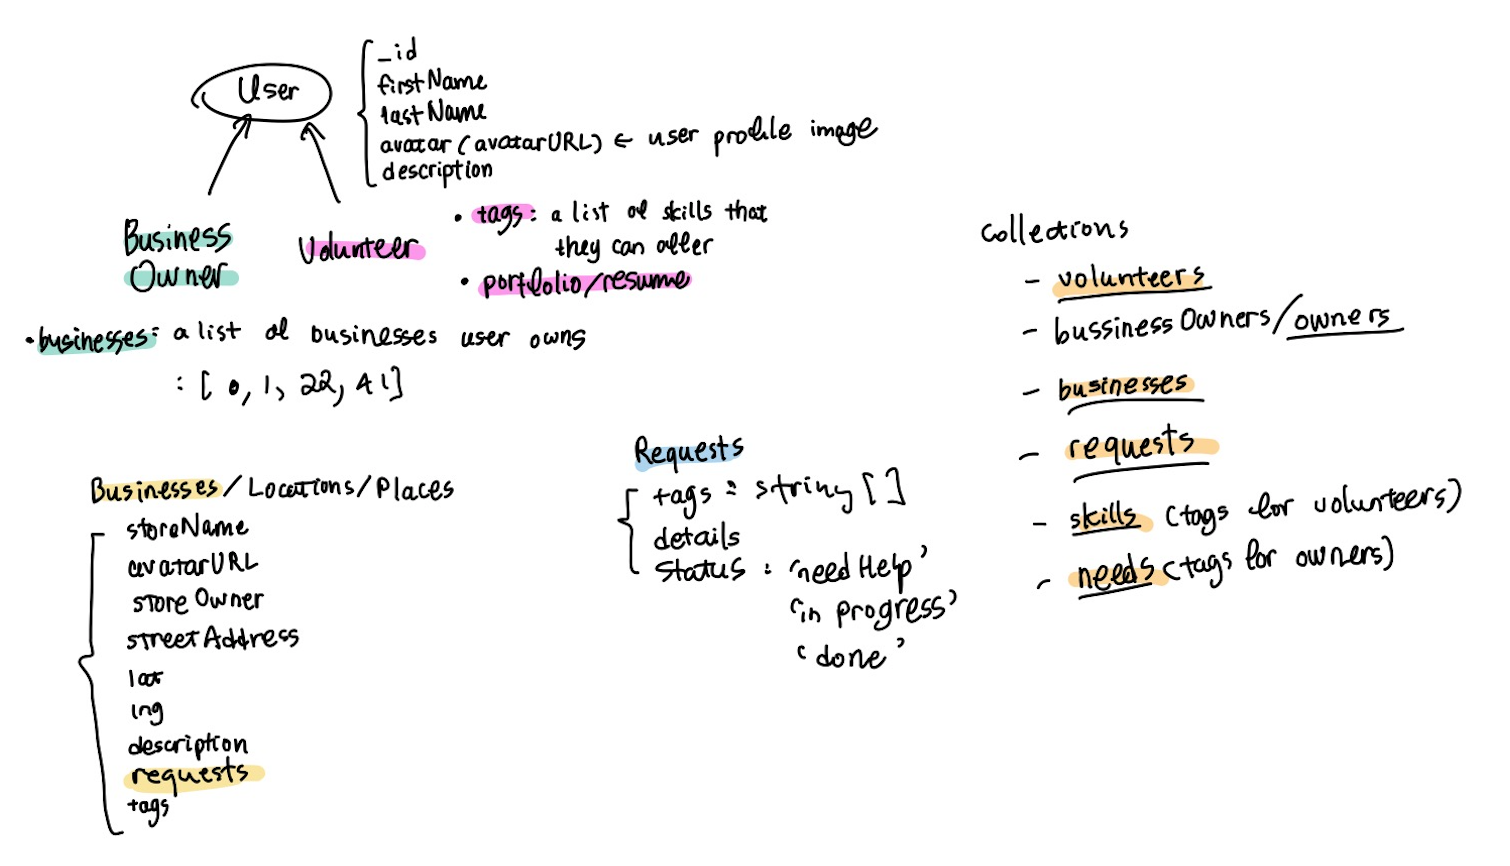 User
_id
firstName
lastName
avatar (avatarURL) ← user profile image
description
Business
Owner
Volunteer
• tags: a list of skills that
they can offer
• portfolio/resume
• businesses: a list of businesses user owns
: [ 0, 1, 22, 41]
Businesses/Locations/Places
storeName
avatarURL
storeOwner
streetAddress
lat
lng
description
requests
tags
Requests
tags : string []
details
status : 'needHelp'
'in progress'
'done'
Collections
- volunteers
- bussinessOwners/owners
- businesses
- requests
- skills (tags for volunteers)
- needs (tags for owners)